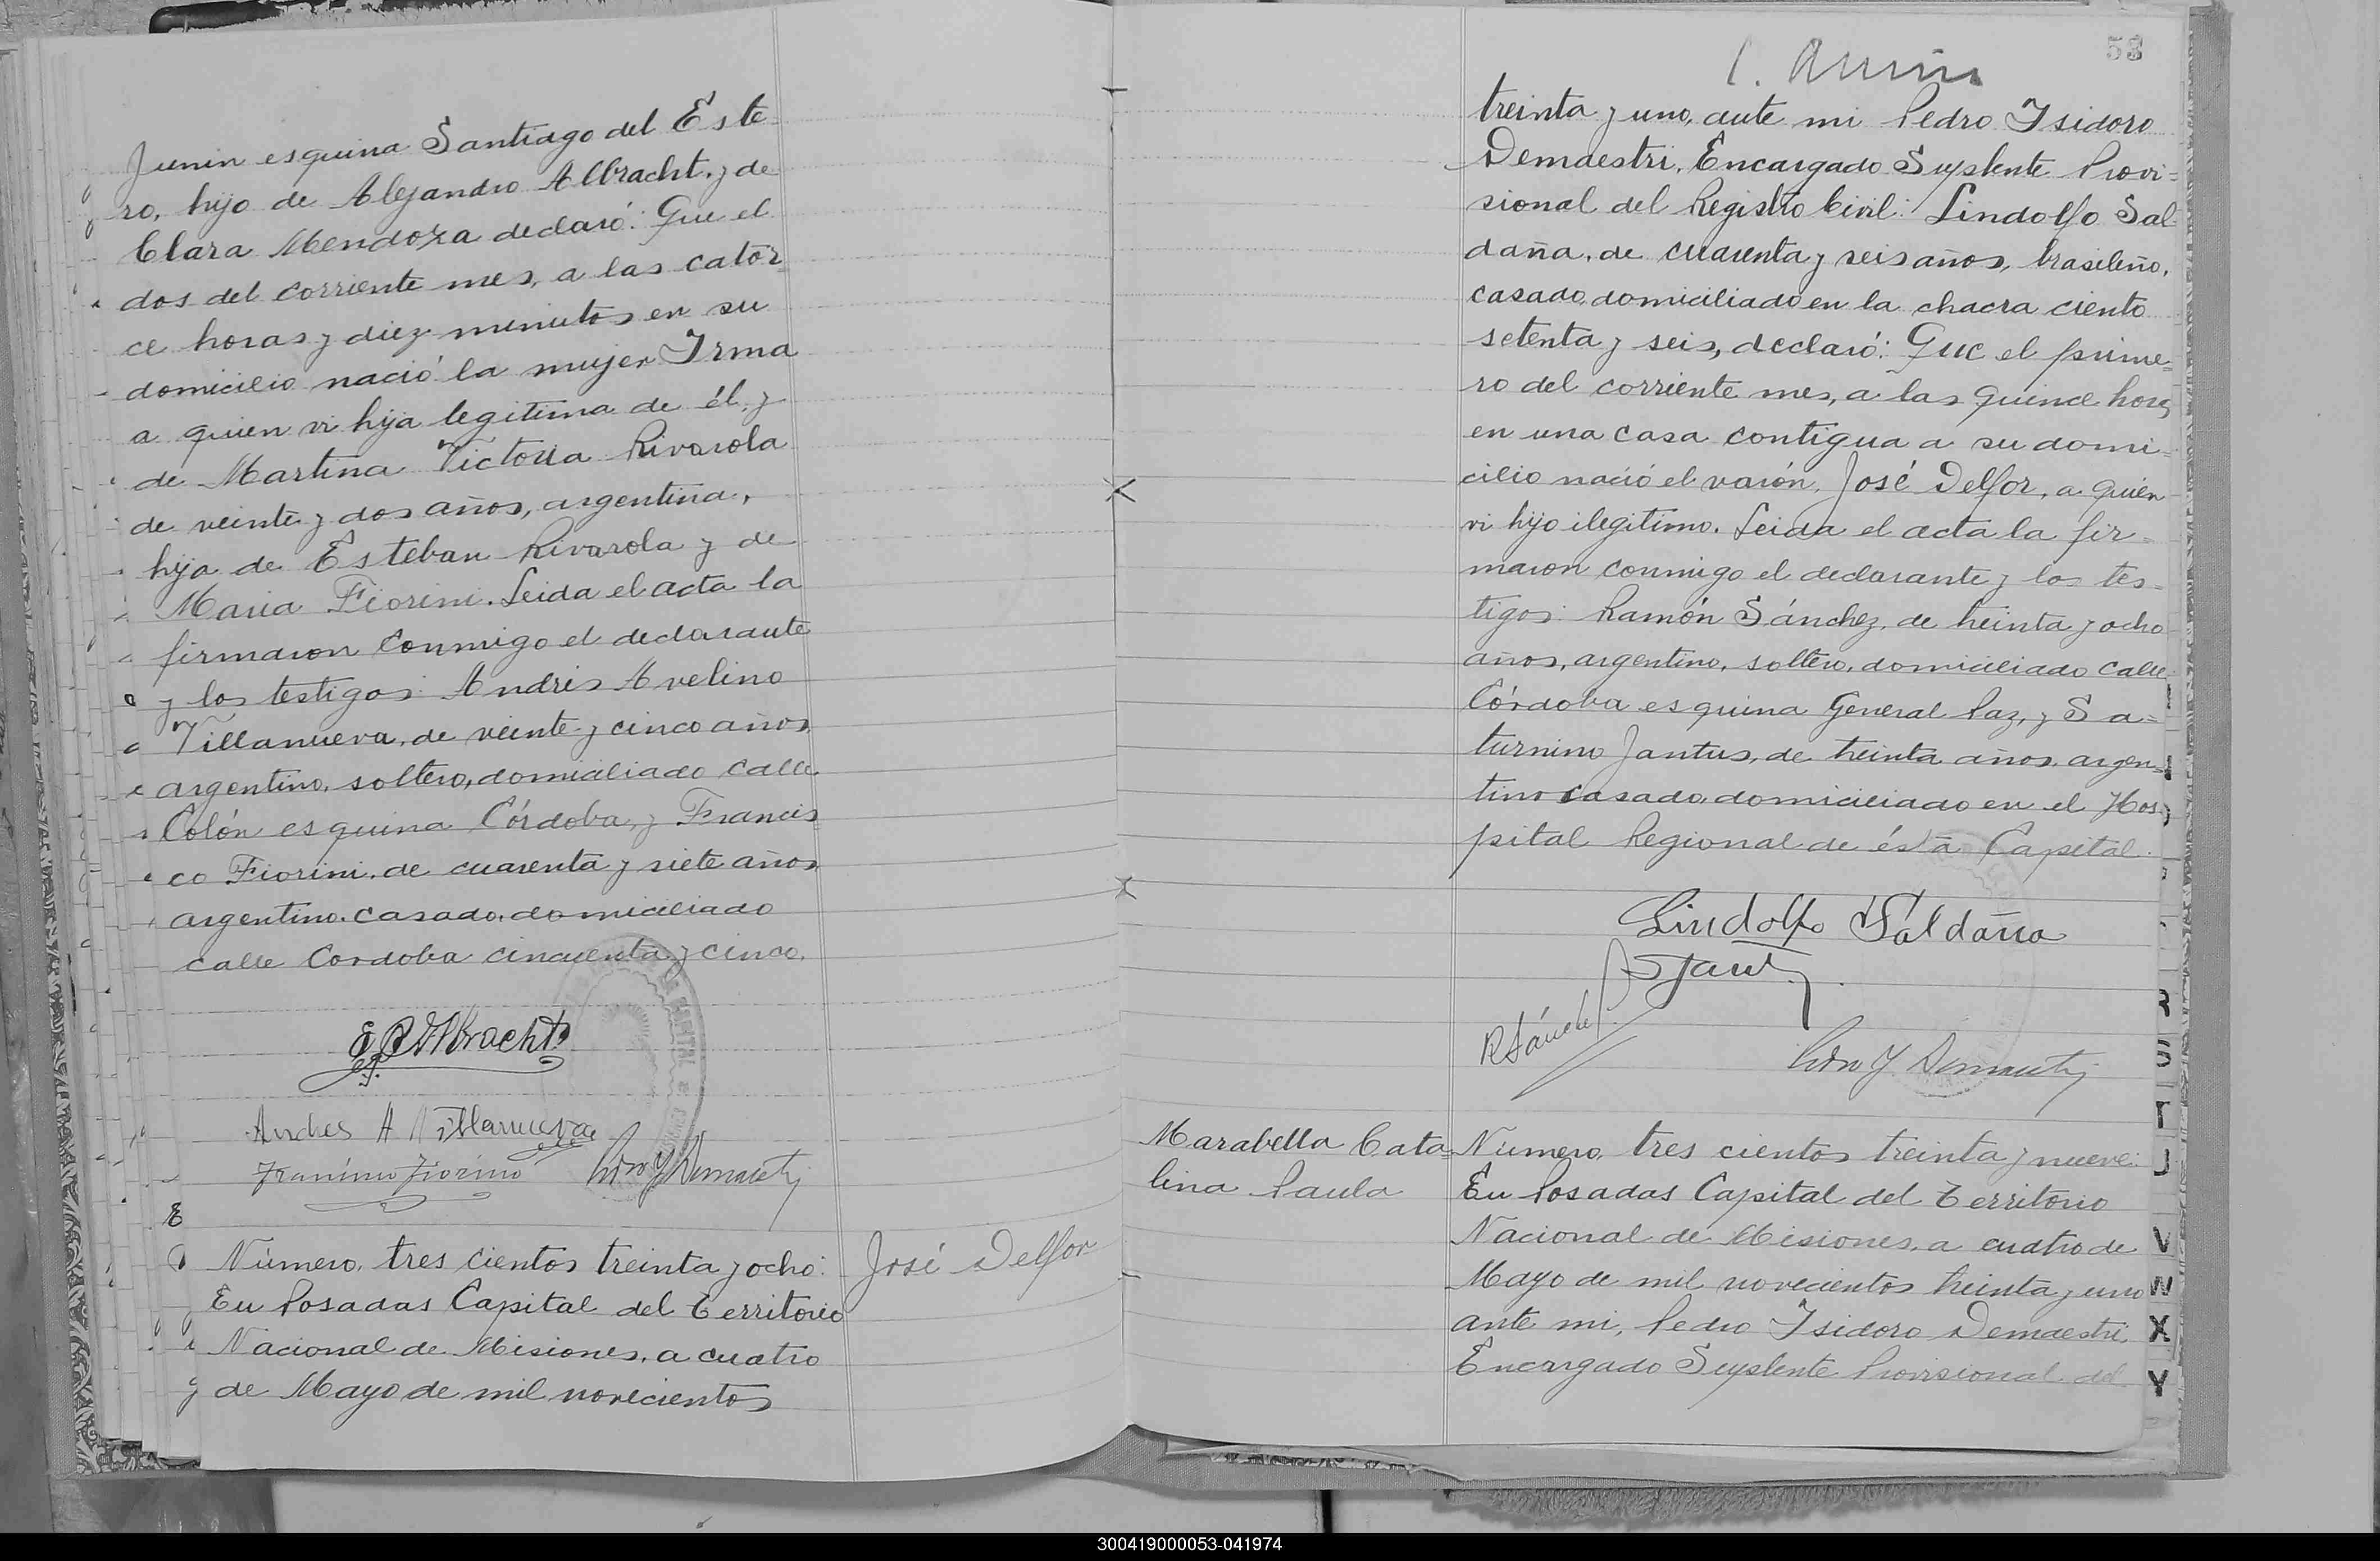 Junin esquina Santiago del Este
ro, hijo de Alejandro Albracht, y de
Clara Mendoza declaró: Que el
dos del corriente mes, a las cator
ce horas y diez minutos en su
domicilio nació la mujer Irma
a quien vi hija legitima de él, y
de Martina Victoria Rivarola
de veinte y dos años, argentina,
hija de Esteban Rivarola y de
Maria Fiorini. Leida el acta la
firmaron conmigo el declarante
y los testigos: Andrés Avelino
Villanueva, de veinte y cinco años,
argentino, soltero, domiciliado calle
Colón esquina Córdoba, y Francis
co Fiorini, de cuarenta y siete años,
argentino, casado, domiciliado
calle Cordoba cincuenta y cinco.
Albracht
Andres A Villanueva
Número, tres cientos treinta y ocho:
José Delfor
En Posadas Capital del Territorio
Nacional de Misiones, a cuatro
de Mayo de mil novecientos
53
treinta y uno, ante mi Pedro Isidoro
Demaestri, Encargado Suplente Provi=
sional del Registro Civil: Lindolfo Sal
daña, de cuarenta y seis años, brasileño,
casado, domiciliado en la chacra ciento
setenta y seis, declaró: Que el prime=
ro del corriente mes, a las quince horas,
en una casa contigua a su domi=
cilio nació el varón, José Delfor, a quien
vi hijo ilegitimo. Leida el acta la fir=
maron conmigo el declarante y los tes=
tigos: Ramón Sánchez, de treinta y ocho
años, argentino, soltero, domiciliado calle
Córdoba esquina General Paz, y Sa=
turnino Jantus, de treinta años, argen=
tino casado, domiciliado en el Hos
pital Regional de ésta Capital.
Lindolfo Saldaña
R Sánchez
Marabella Cata=
lina Paula
Número, tres cientos treinta y nueve:
En Posadas Capital del Territorio
Nacional de Misiones, a cuatro de
Mayo de mil novecientos treinta y uno
ante mi, Pedro Isidoro Demaestri,
Encargado Suplente Provisional del
R
S
T
J
V
W
X
Y
300419000053-041974